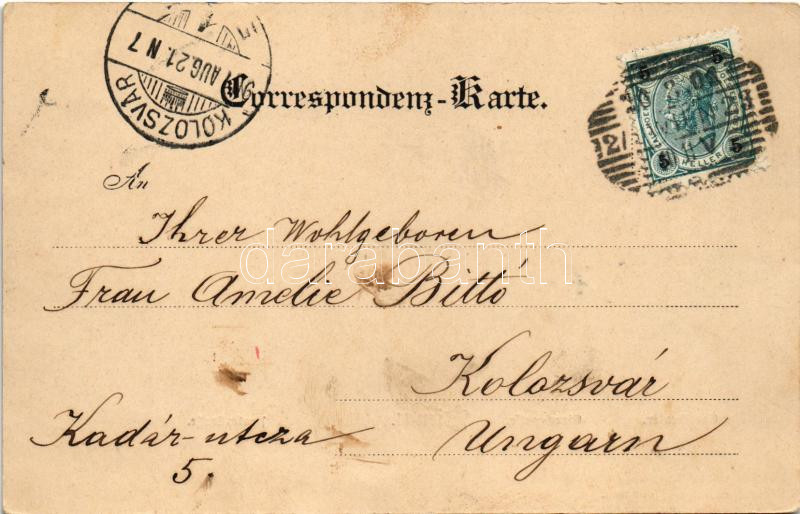 KOLOZSVÁR
AUG. 21. N 7
Correspondenz-Karte.
5 5
5 HELLER 5
An
Ihrer Wohlgeboren
darabanth
Frau Amelie Bittó
Kolozsvár
Kadár-utcza
Ungarn
5.